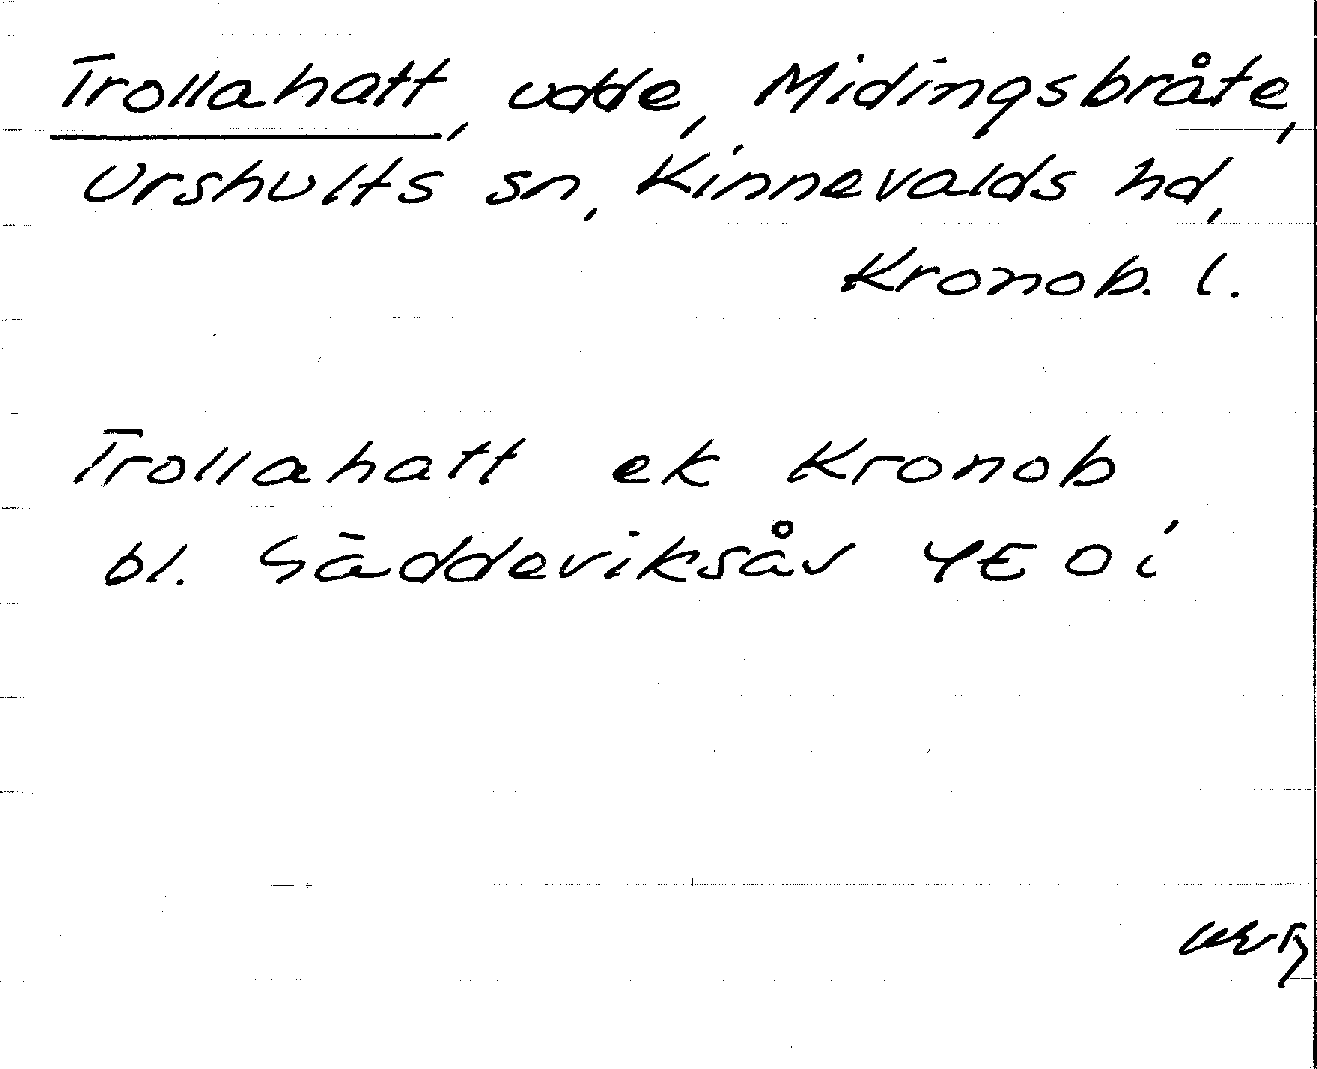 Trollahatt, udde, Midingsbråte,
Urshults sn, Kinnevalds hd,
Kronob. l.
Trollahatt ek Kronob
bl. Sädderviksåv 4E 0i